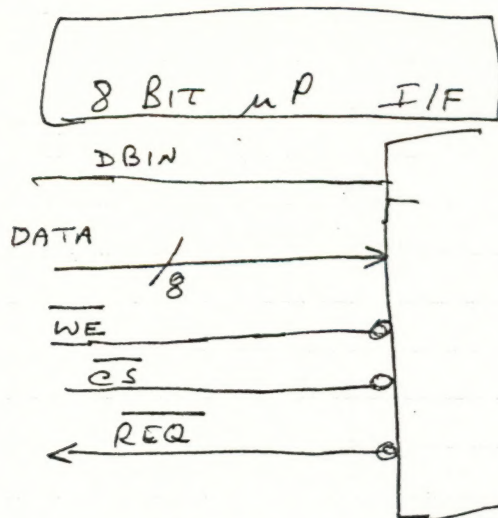 8 BIT μP I/F
DBIN
DATA
8
W̅E̅
C̅S̅
R̅E̅Q̅